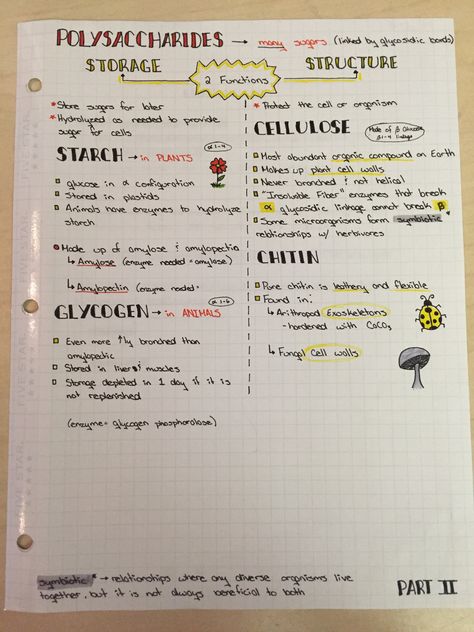 POLYSACCHARIDES → many sugars (linked by glycosidic bonds)
STORAGE
2 Functions
STRUCTURE
* Store sugars for later
* Hydrolyzed as needed to provide
sugar for cells
STARCH → in PLANTS
α 1-4
glucose in α configuration
Stored in plastids
Animals have enzymes to hydrolyze
starch
Made up of amylose & amylopectin
↳ Amylose (enzyme needed = amylase)
↳ Amylopectin (enzyme needed =
GLYCOGEN → in ANIMALS
α 1-6
Even more ↑ly branched than
amylopectin
Stored in liver & muscles
Storage depleted in 1 day if it is
not replenished
(enzyme = glycogen phosphorolase)
* Protect the cell or organism
CELLULOSE
Made of β Glucose
β 1-4 linkage
Most abundant organic compound on Earth
Makes up plant cell walls
Never branched & not helical
"Insoluble Fiber" enzymes that break
α glycosidic linkage cannot break β
Some microorganisms form symbiotic
relationships w/ herbivores
CHITIN
Pure chitin is leathery and flexible
Found in:
↳ Arithropod Exoskeletons
- hardened with CaCO₃
↳ Fungal Cell walls
symbiotic * → relationships where any diverse organisms live
together, but it is not always beneficial to both
PART II